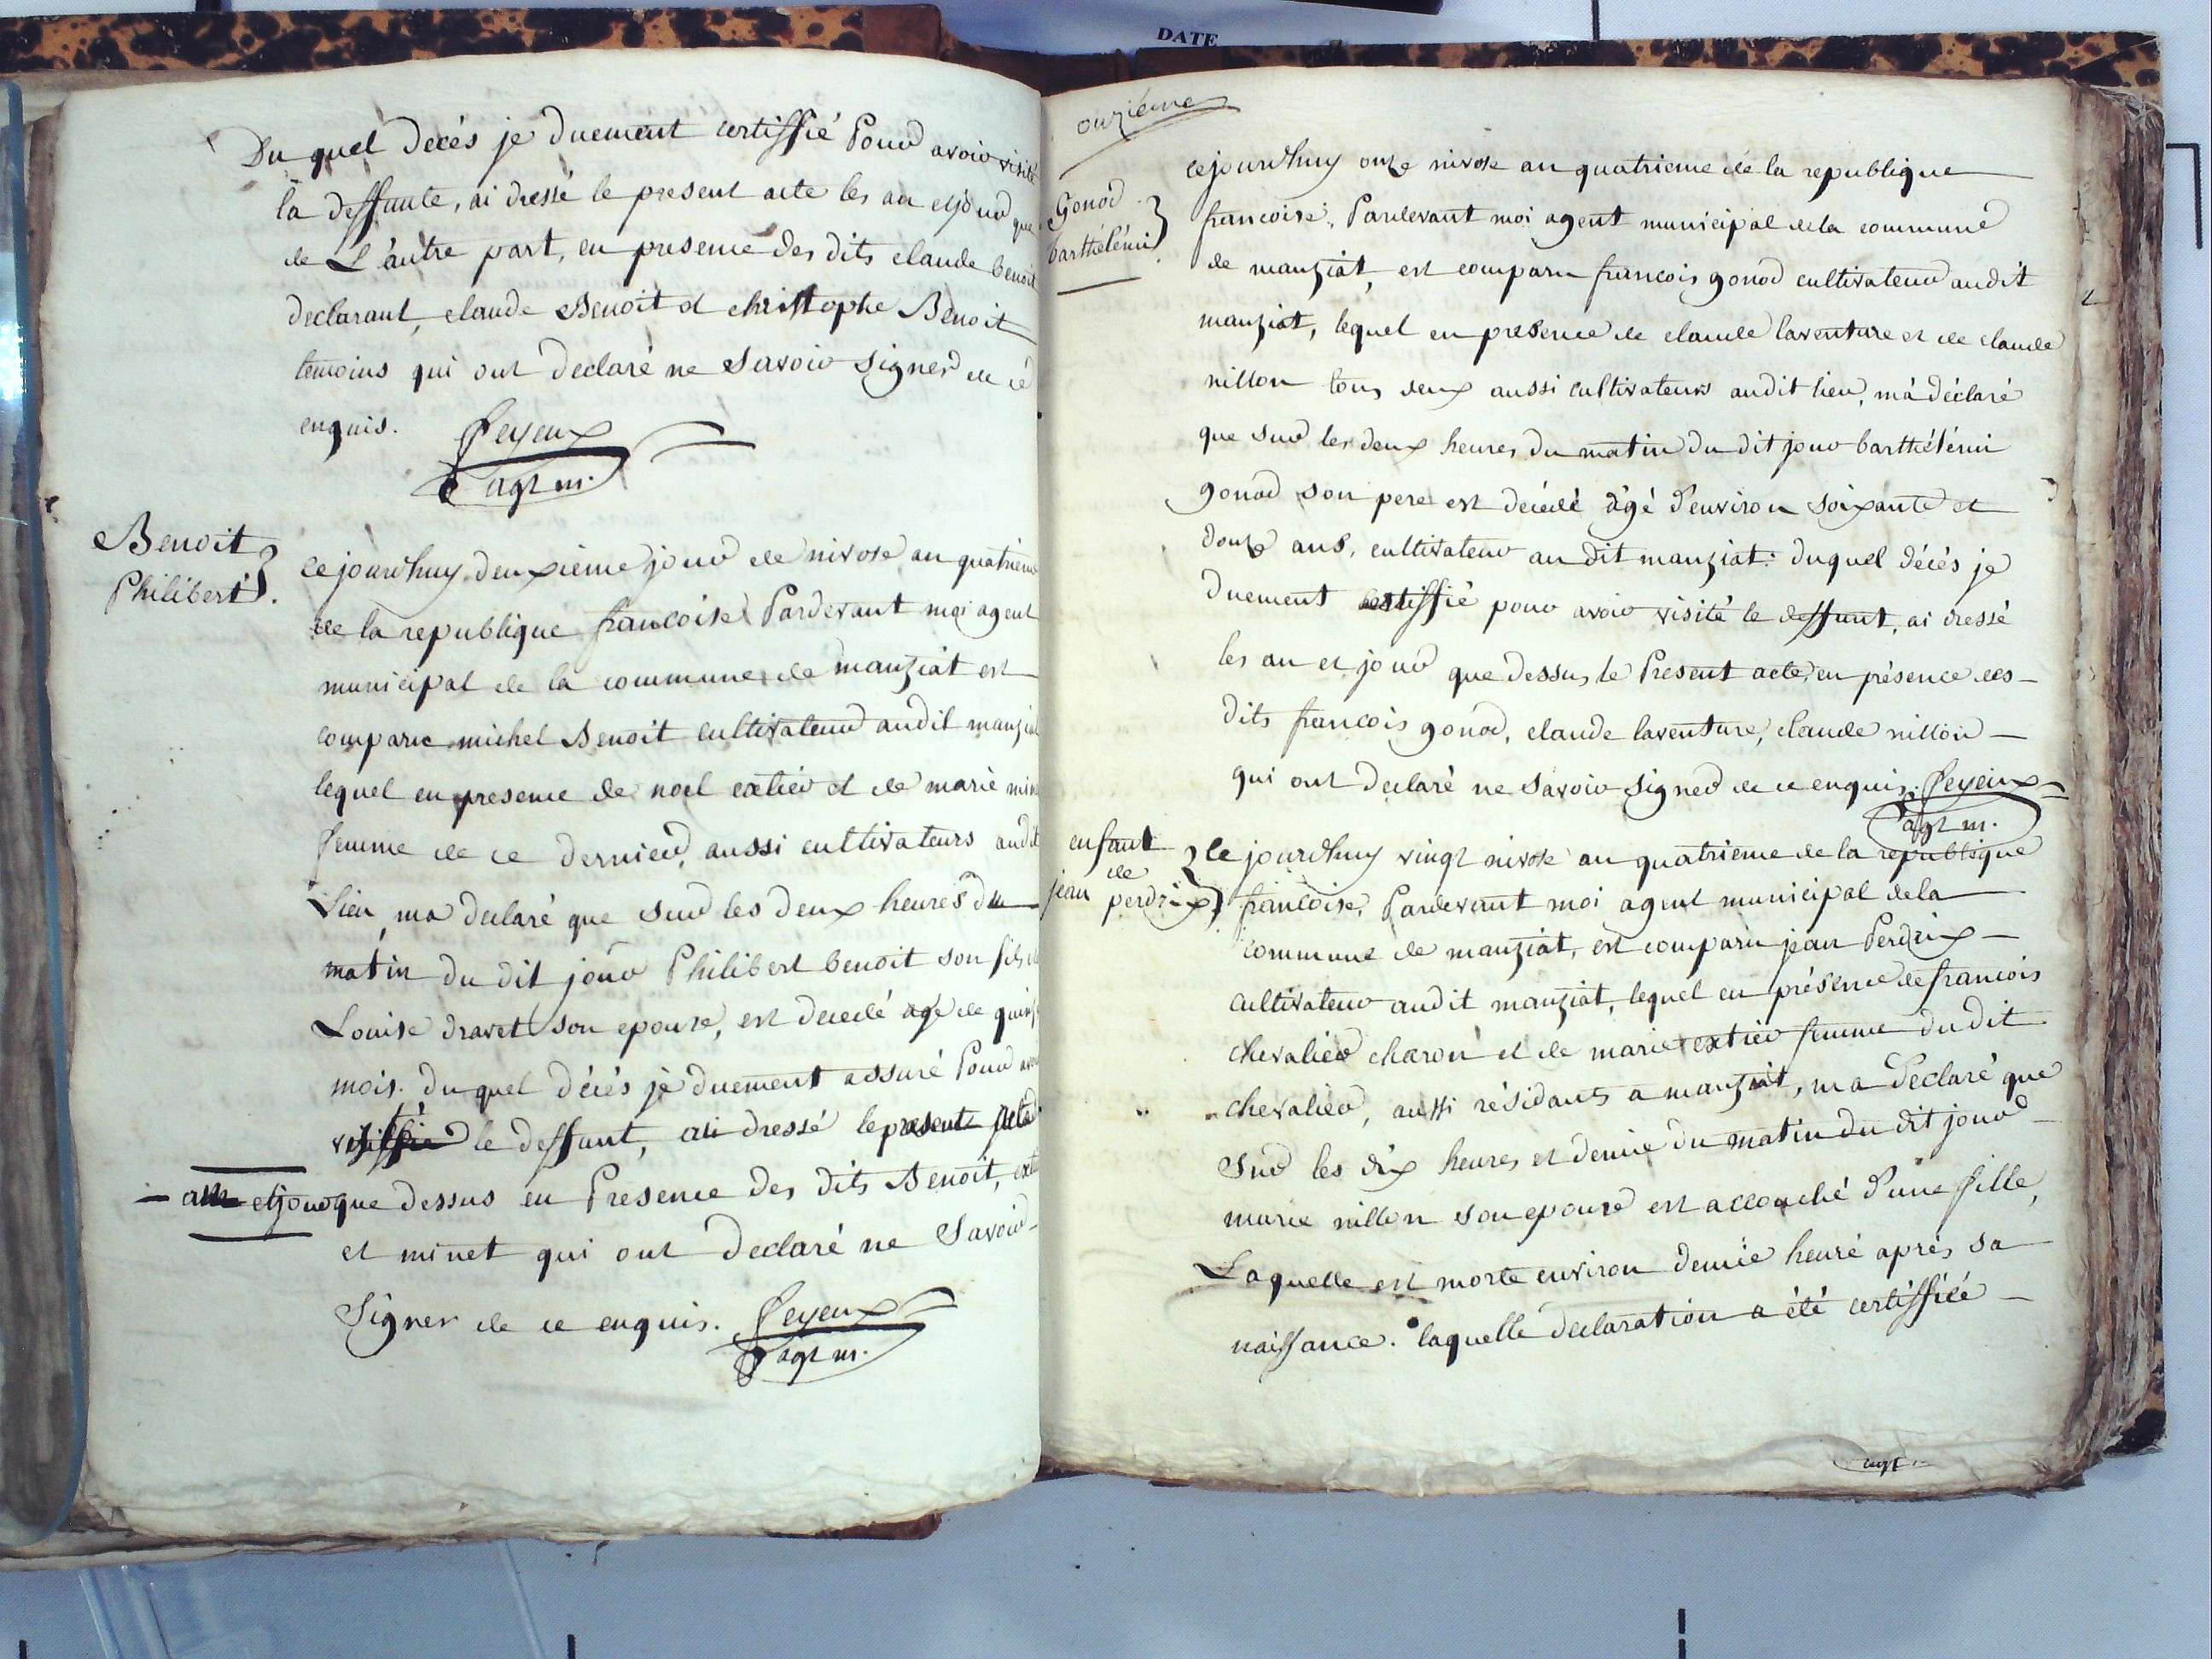 DATE
Du quel decés je duement certiffié Pour avoir visité
la deffunte, ai dressé le present acte les an et jour que
de L'autre part, en presence des dits claude benoit
declarant, claude Benoit et christophe Benoit
temoins qui ont declaré ne savoir signer de ce
enquis. feyeux
agt m.
Benoit
Philibert
cejourdhuy deuxieme jour de nivose an quatrieme
de la republique francoise Pardevant moi agent
municipal de la commune de manziat est
comparu michel Benoit cultivateur audit manziat
lequel en presence de noel extier et de marie
femme de ce dernier, aussi cultivateurs audit
Lieu, ma declaré que sur les deux heures du
matin du dit jour Philibert benoit son fils
Louise dravet son epouse, est decedé agé de
mois. duquel décés je duement assuré Pour
le deffunt, ai dressé le present
an et jour que dessus en Presence des dits Benoit,
et minet qui ont declaré ne Savoir
Signer de ce enquis. feyeux
agt m.
onzieme
Gonod
barthélémi
cejourdhuy onze nivose an quatrieme de la republique
francoise, Pardevant moi agent municipal dela commune
de manziat, est comparu francois gonod cultivateur audit
manziat, lequel en presence de claude laventure et de claude
nillon tous deux aussi cultivateurs audit lieu, m'a déclaré
que sur les deux heures du matin du dit jour barthélémi
gonod son pere est décédé âgé d'environ soixante et
douze ans, cultivateur au dit manziat: duquel décés je
duement certiffié pour avoir visité le deffunt, ai dressé
les an et jour que dessus le Present acte, en présence des
dits francois gonod, claude laventure, claude nillon
qui ont declaré ne savoir signer de ce enquis. feyeux
agt m.
enfant
de
jean perdrix
Ce jourdhuy vingt nivose an quatrieme de la republique
francoise, Pardevant moi agent municipal dela
commune de manziat, est comparu jean Perdrix
cultivateur audit manziat, lequel en présence de francois
chevalier charon et de marie extier femme du dit
chevalier, aussi résidants a manziat, m a declaré que
sur les dix heures et demie du matin du dit jour
marie nillon son epouse est accouché d'une fille,
Laquelle est morte environ demie heure aprés sa
naissance. laquelle declaration a été certiffiée